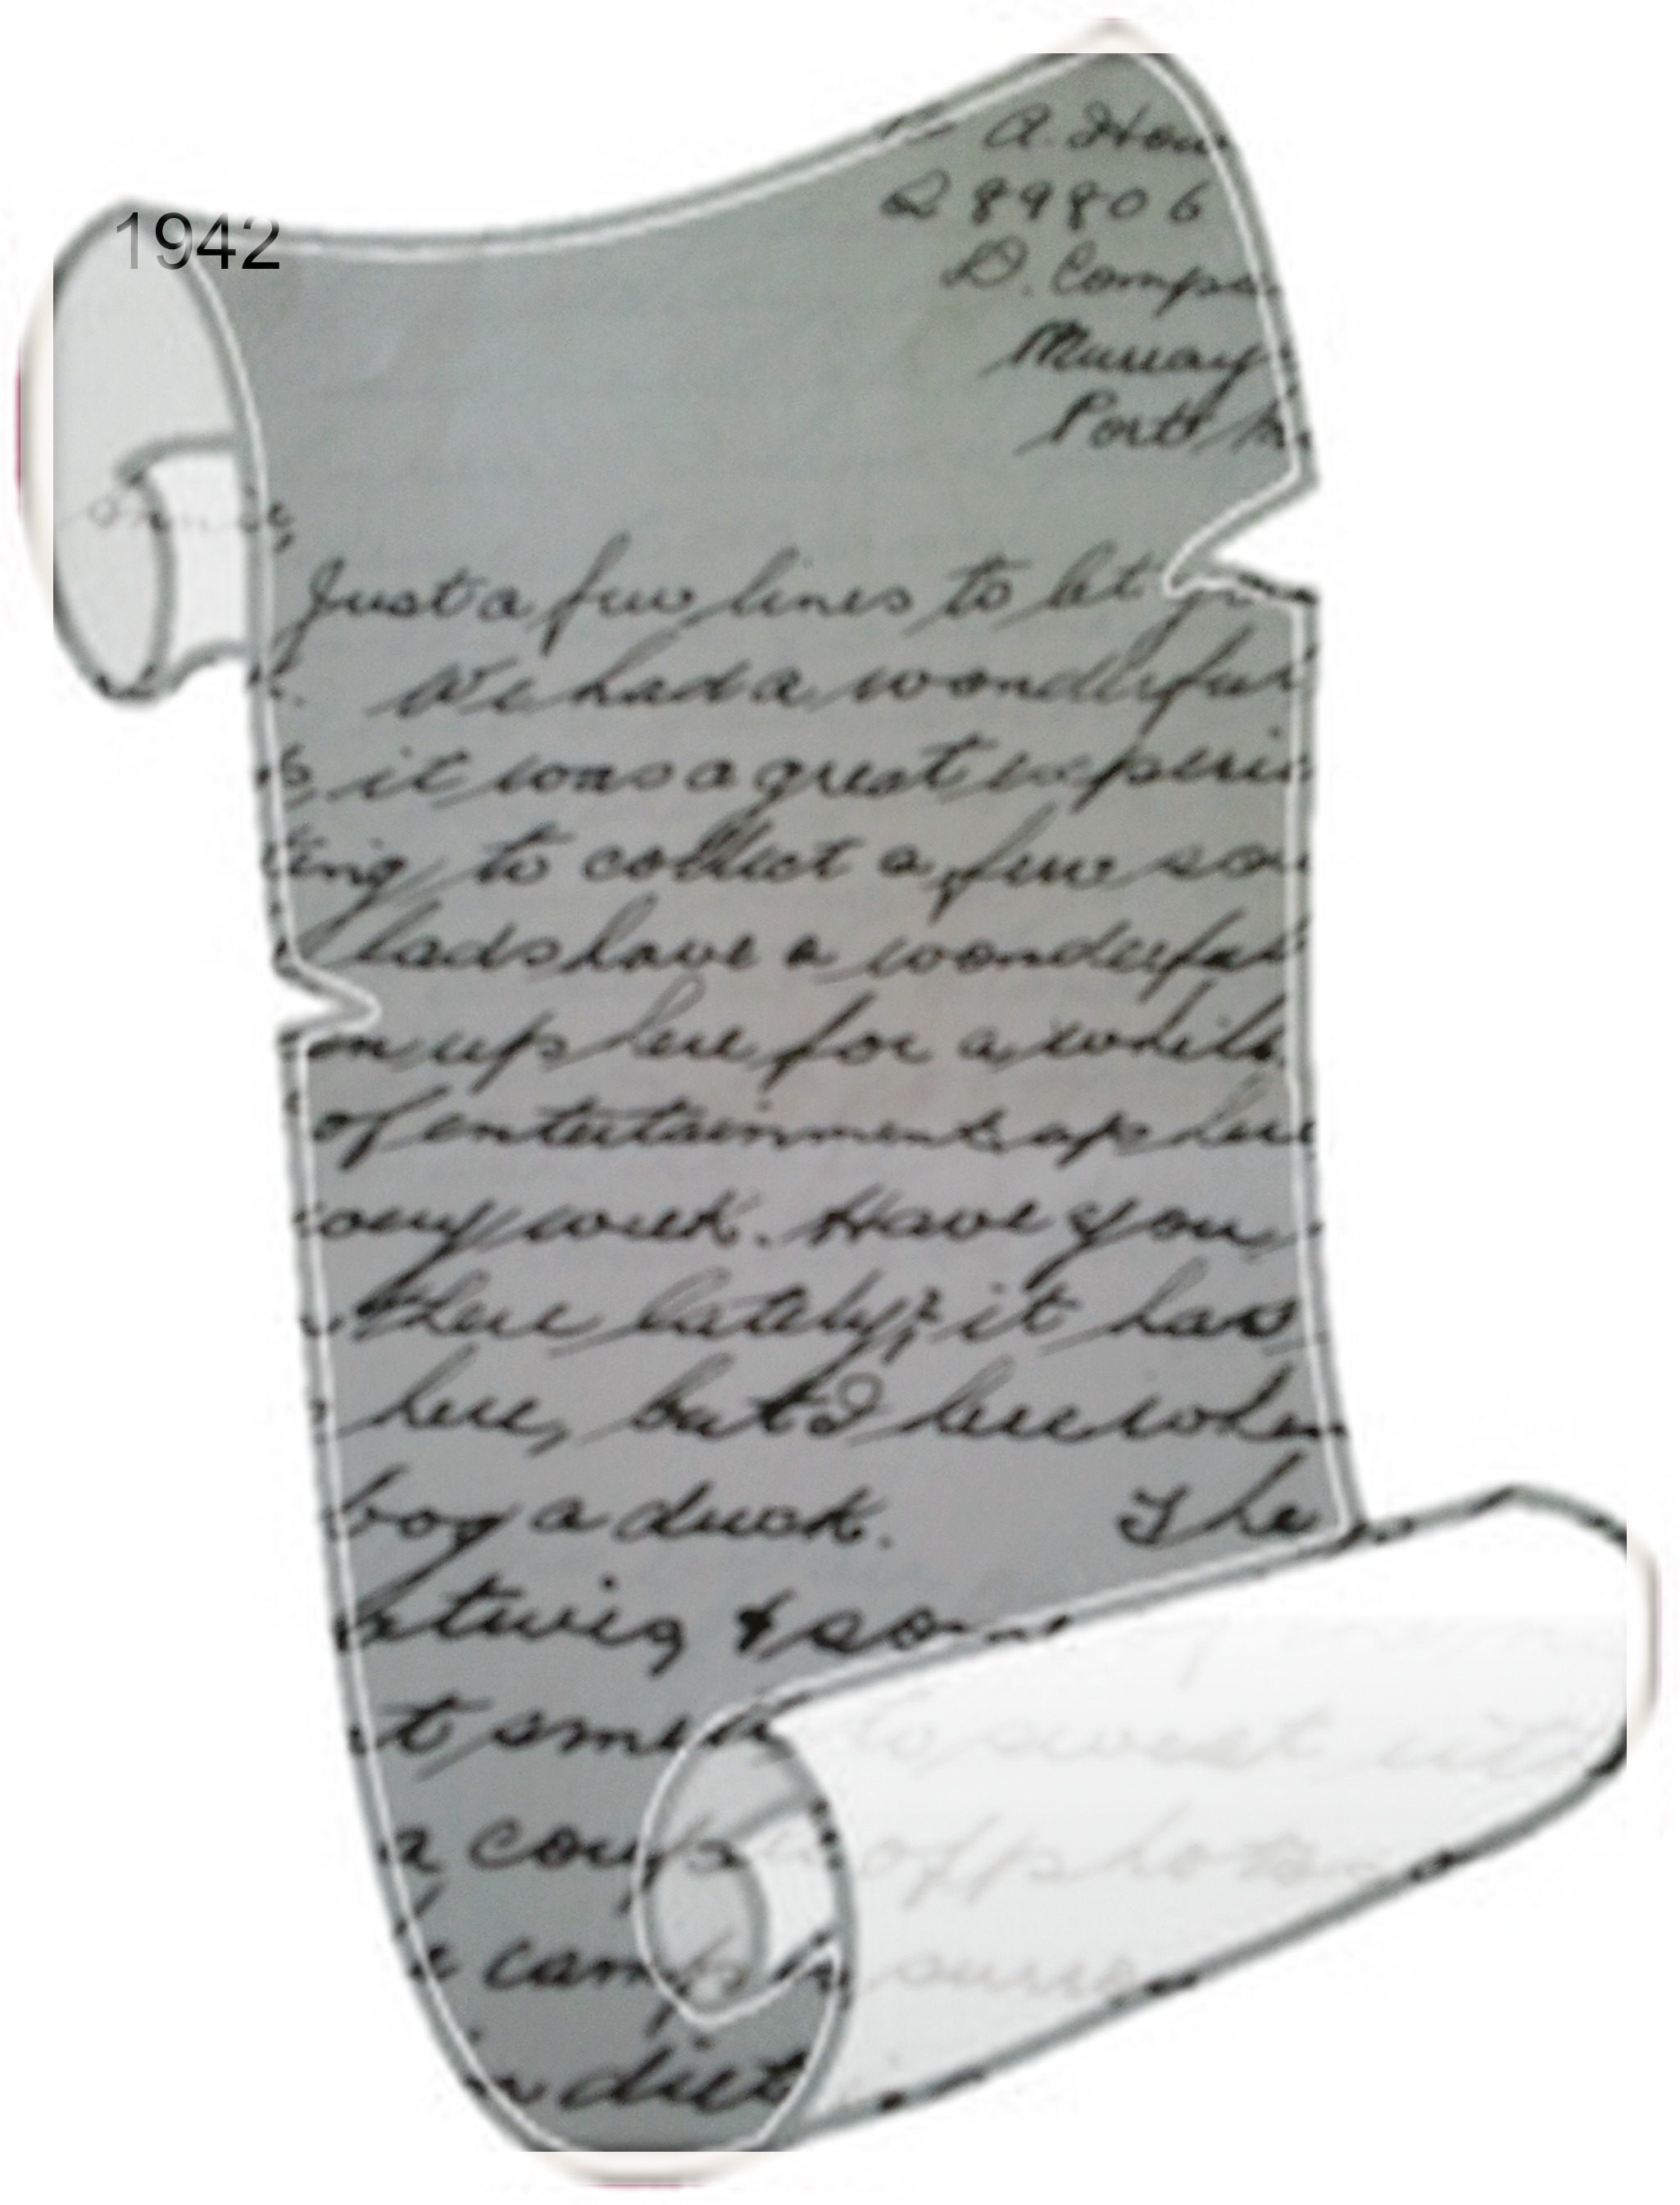 1942
A. How
Q 89806
D. Compa
Murray
Port M
onnie,
Just a few lines to let
We had a wonderful
it was a great experie
ting to collect a few so
lads have a wonderful
en up here for a while.
of entertainment up here
week. Have you
there lately? it has
here, but I here when
bog a duck. The
& som
t smell to sweet
a couple of photos
camp
diet